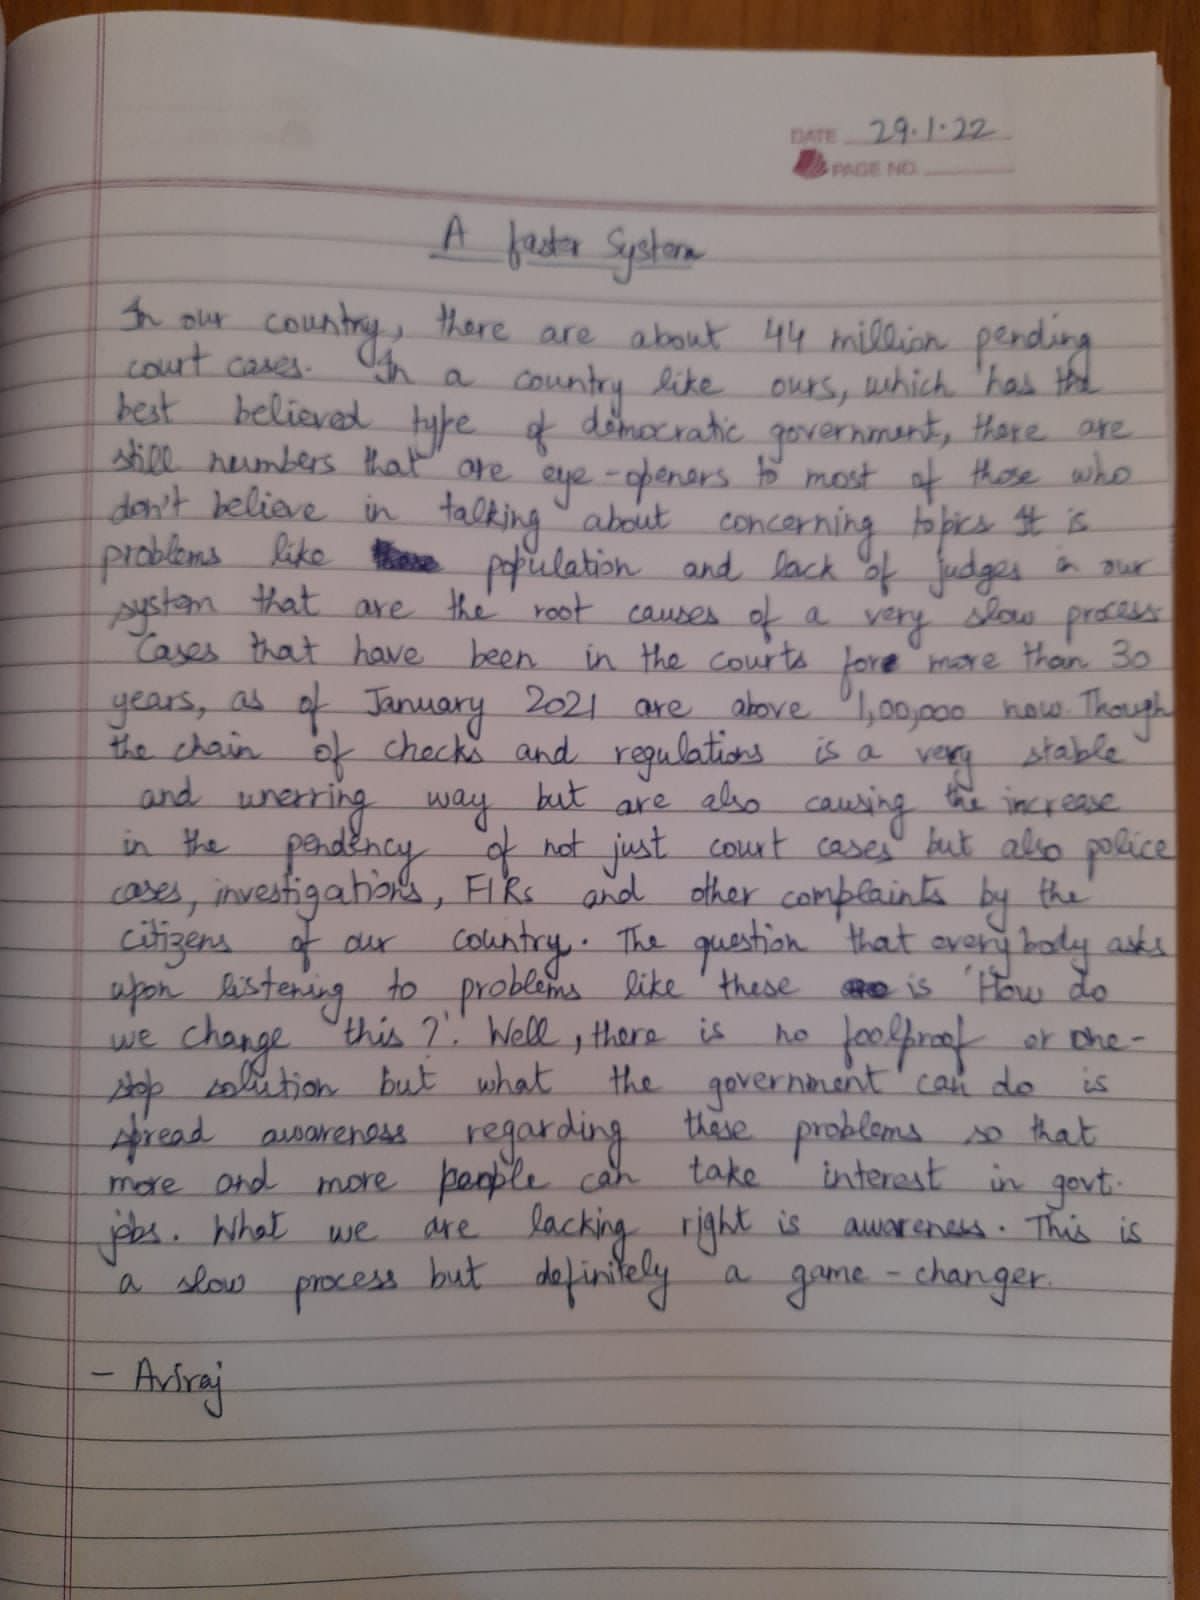 DATE 29.1.22
PAGE NO.
A faster System
In our country, there are about 44 million pending
court cases. In a country like ours, which has the
best believed type of democratic government, there are
still numbers that are eye-openers to most of those who
don't believe in talking about concerning topics. It is
problems like population and lack of judges in our
system that are the root causes of a very slow process.
Cases that have been in the courts for more than 30
years, as of January 2021 are above 1,00,000 now. Though
the chain of checks and regulations is a very stable
and unerring way but are also causing the increase
in the pendency of not just court cases but also police
cases, investigations, FIRs and other complaints by the
citizens of our country. The question that everybody asks
upon listening to problems like these is 'How do
we change this?'. Well, there is no foolproof or one-
stop solution but what the government can do is
spread awareness regarding these problems so that
more and more people can take interest in govt.
jobs. What we are lacking right is awareness. This is
a slow process but definitely a game-changer.
- Aviraj